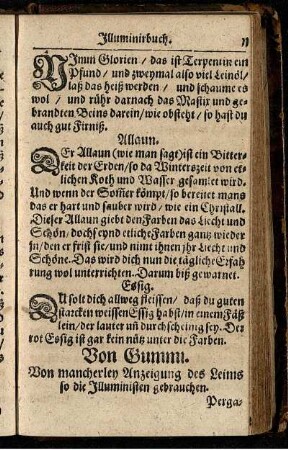 Illuminirbuch.
NImm Glorien / das ist Terpentin ein
Pfund / und zweymal also viel Leinöl /
laß das heiß werden / und schaume es
wol / und rühr darnach das Mastix und ge-
brandten Beins darein / wie obsteht / so hast du
auch gut Firniß.
Allaun.
DEr Allaun (wie man sagt) ist ein Bitter-
keit der Erden / so da Winterszeit von et-
lichen Koth und Wasser gesamlet wird.
Und wenn der Som̄er kömpt / so bereitet mans
das er hart und sauber wird / wie ein Chrystall.
Dieser Allaun giebt den Farben das Liecht und
Schön / doch seynd etliche Farben gantz wieder
jn / den er frist sie / und nimt ihnen jhr Liecht und
Schöne. Das wird dich nun die tägliche Erfah
rung wol unterrichten. Darum biß gewarnet.
Essig.
DU solt dich allweg fleissen / daß du guten
starcken weissen Essig habst / in einem Fäß
lein / der lauter uñ durchscheinig sey. Der
rot Essig ist gar kein nütz unter die Farben.
Von Gumm.
Von mancherley Anzeigung des Leims
so die Illuministen gebrauchen.
Perga-